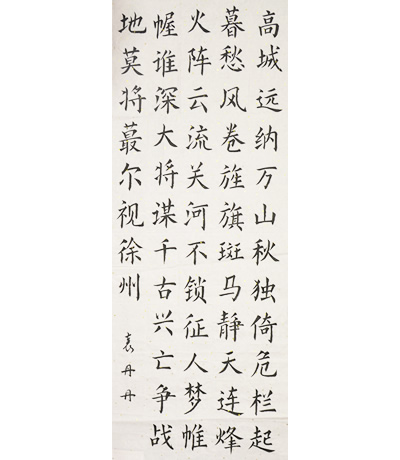 高城远纳万山秋独倚危栏起
暮愁风卷旌旗斑马静天连烽
火阵云流关河不锁征人梦帷
幄谁深大将谋千古兴亡争战
地莫将蕞尔视徐州
袁丹丹